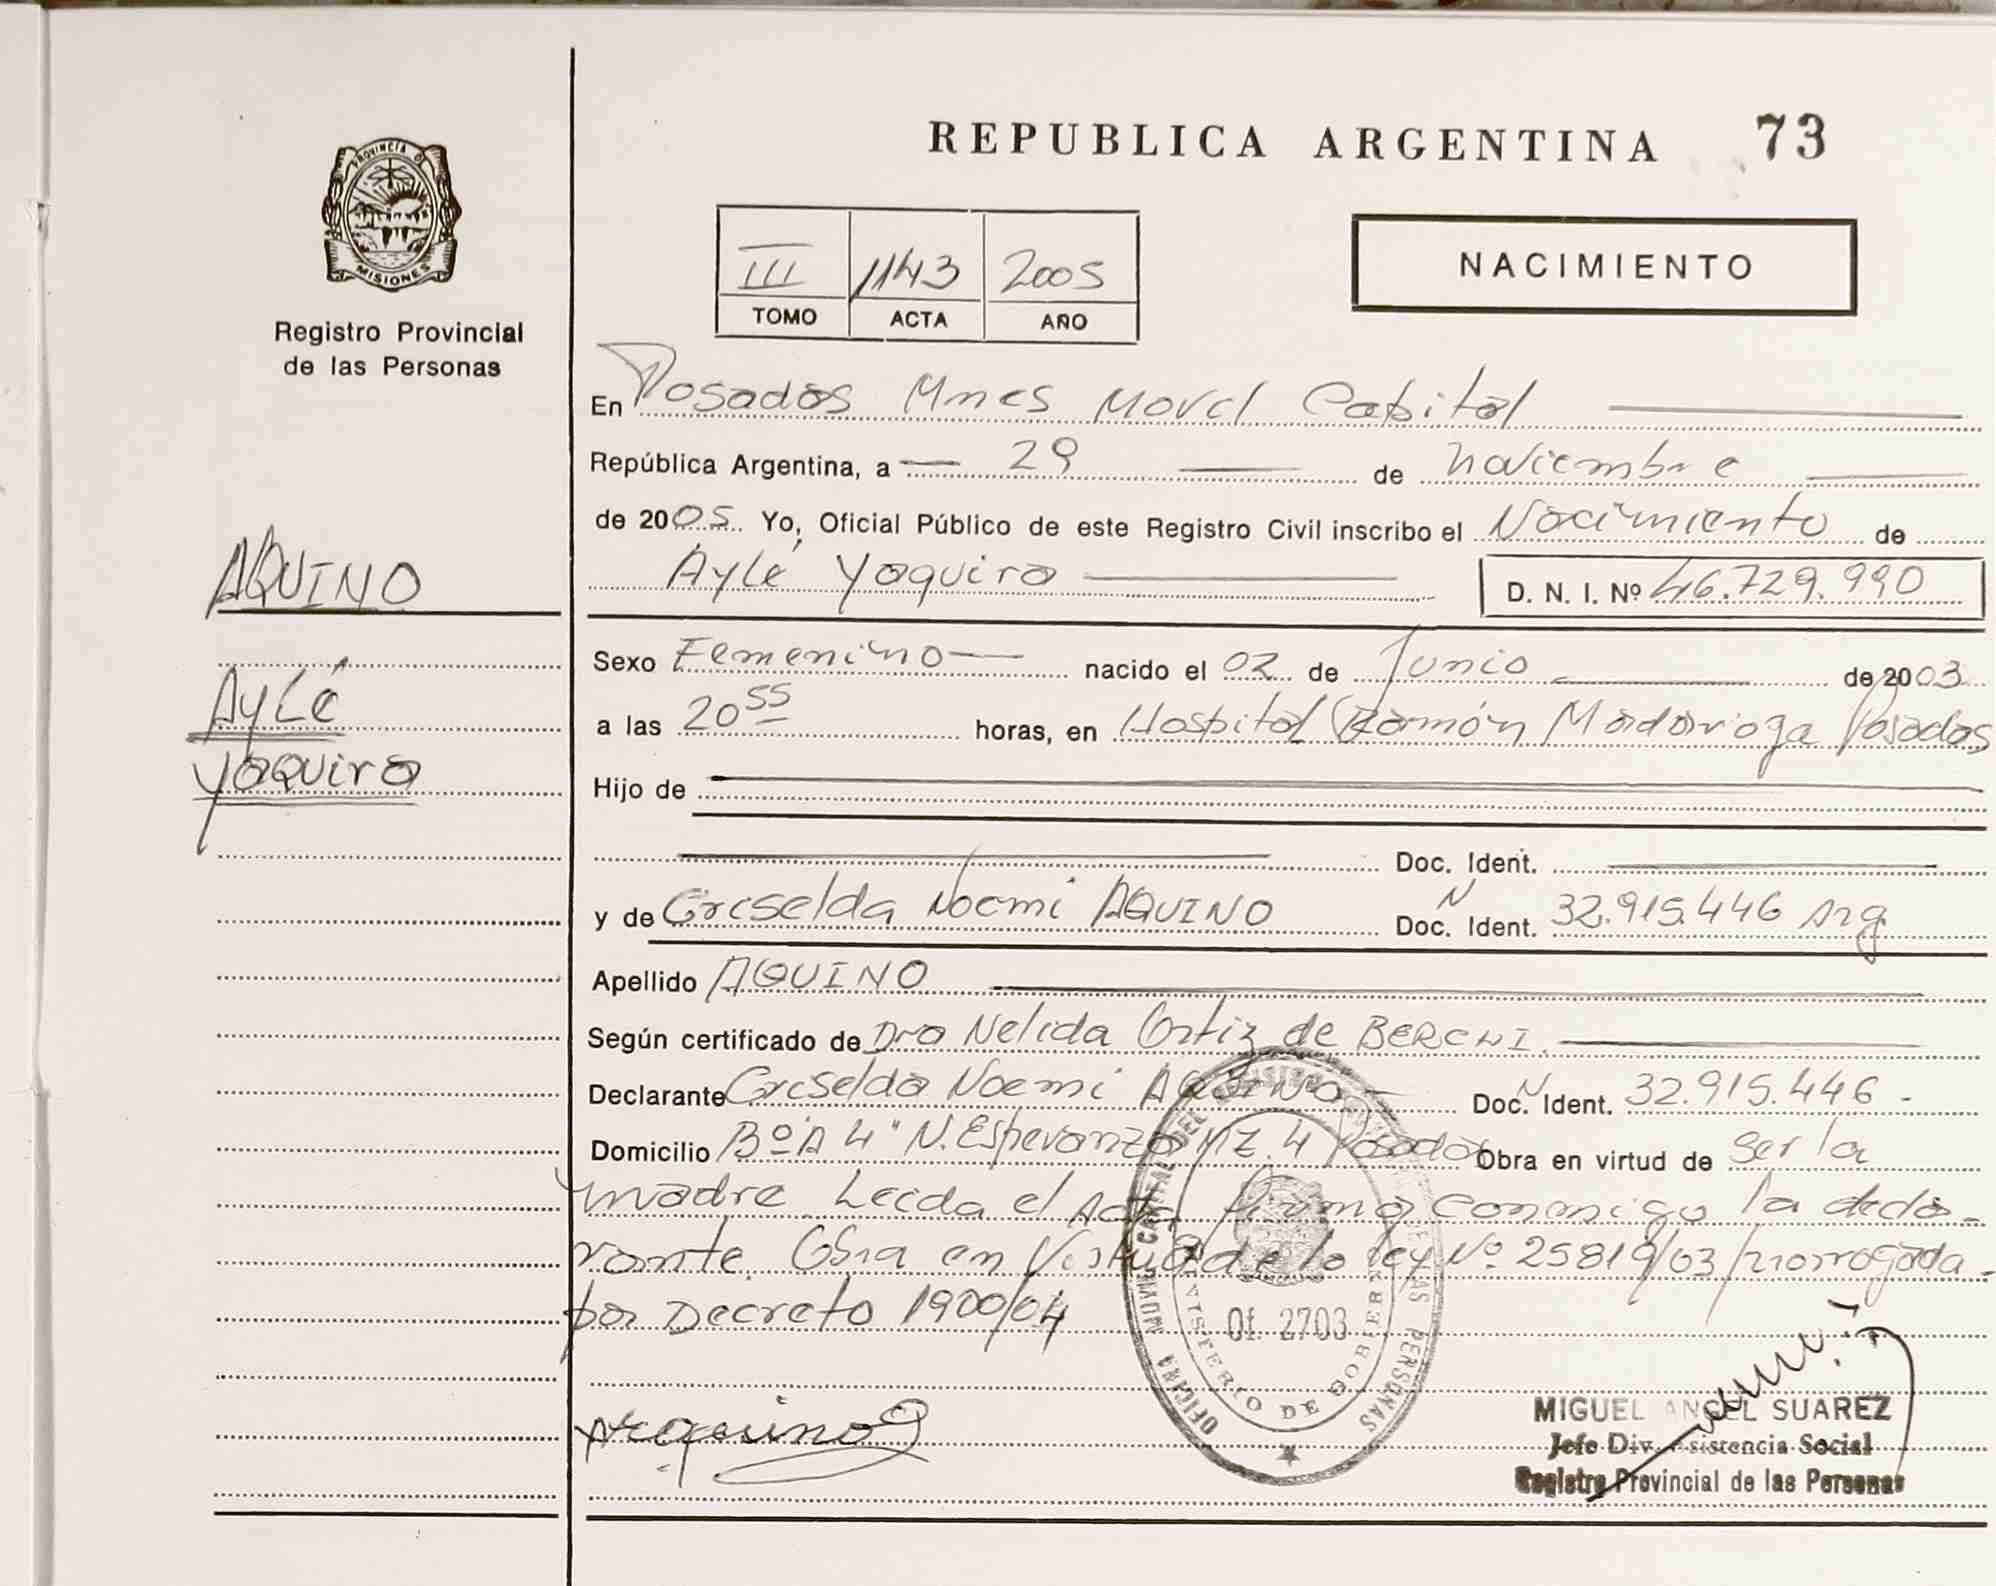 REPUBLICA ARGENTINA 73
PROVINCIA DE
MISIONES
Registro Provincial
de las Personas
III 1143 2005
TOMO ACTA AÑO
NACIMIENTO
En Posadas Mnes Movil Capital
República Argentina, a 29 de noviembre
de 2005 Yo, Oficial Público de este Registro Civil inscribo el Nacimiento de
AQUINO
Aylé Yaquira D. N. I. Nº 46.729.990
Aylé
Yaquira
Sexo Femenino nacido el 02 de Junio de 2003
a las 20 55 horas, en Hospital Ramón Madariaga Posadas
Hijo de
Doc. Ident.
y de Griselda Noemi AQUINO Doc. N Ident. 32.915.446 Arg
Apellido AQUINO
Según certificado de Dra Nelida Ortiz de BERCHI.
Declarante Griselda Noemi AQUINO Doc. N Ident. 32.915.446 -
Domicilio Bº A 4 "N. Esperanza Mz. 4 Posadas Obra en virtud de ser la
madre Leida el Acta Firma conmigo la decla-
rante. Obra en Virtud de la ley Nº 25819/03 prorrogada
por Decreto 1900/04
OFICINA MOVIL CAPITAL DEL REGISTRO DE LAS PERSONAS
MINISTERIO DE GOBIERNO
Of. 2703
Aquino
MIGUEL ANGEL SUAREZ
Jefe Div. Asistencia Social
Registro Provincial de las Personas